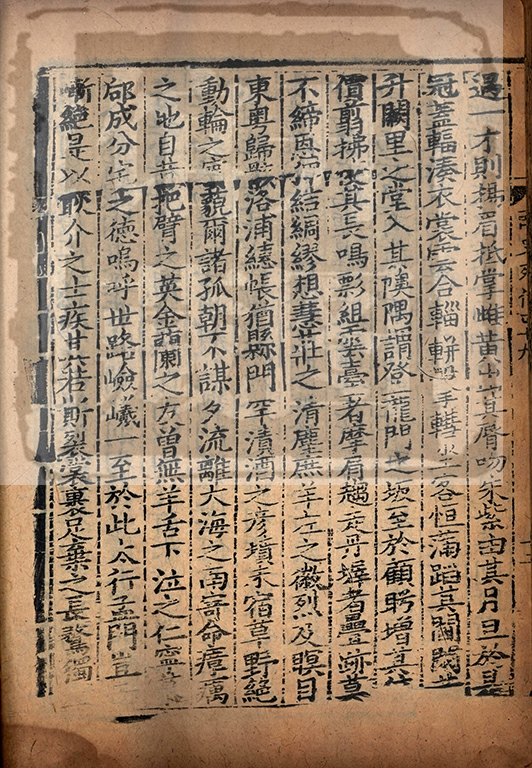 遇一才則揚眉抵掌雌黃出其脣吻朱紫由其月旦於是
冠蓋輻湊衣裳雲合輜軿擊轊坐客恒滿蹈其閫閾若
升闕里之堂入其隩隅謂登龍門之坂至於顧眄增其倍
價翦拂使其長鳴彯組雲臺者摩肩趨走丹墀者疊跡莫
不締恩狎結綢繆想惠莊之清塵庶羊左之徽烈及瞑目
東粵歸骸洛浦繐帳猶懸門罕漬酒之彥墳未宿草野絕
動輪之賓藐爾諸孤朝不謀夕流離大海之南寄命瘴癘
之地自昔把臂之英金蘭之友曾無羊舌下泣之仁寧慕
郈成分宅之德嗚呼世路嶮巇一至於此太行孟門豈
嶄絕是以耿介之士疾其若斯裂裳裹足棄之長騖獨